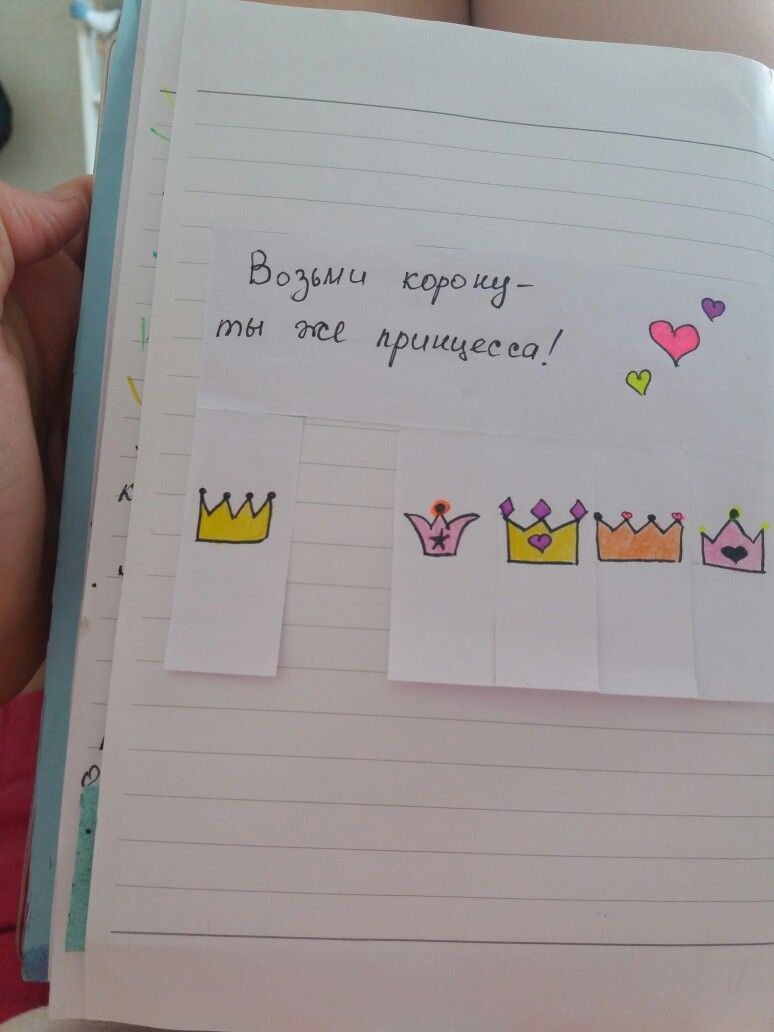 Возьми корону-
ты же принцесса!